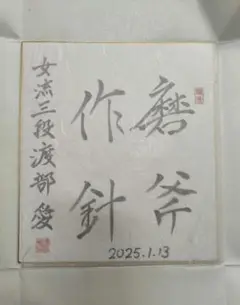 磨斧
作針
女流三段渡部愛
2025.1.13